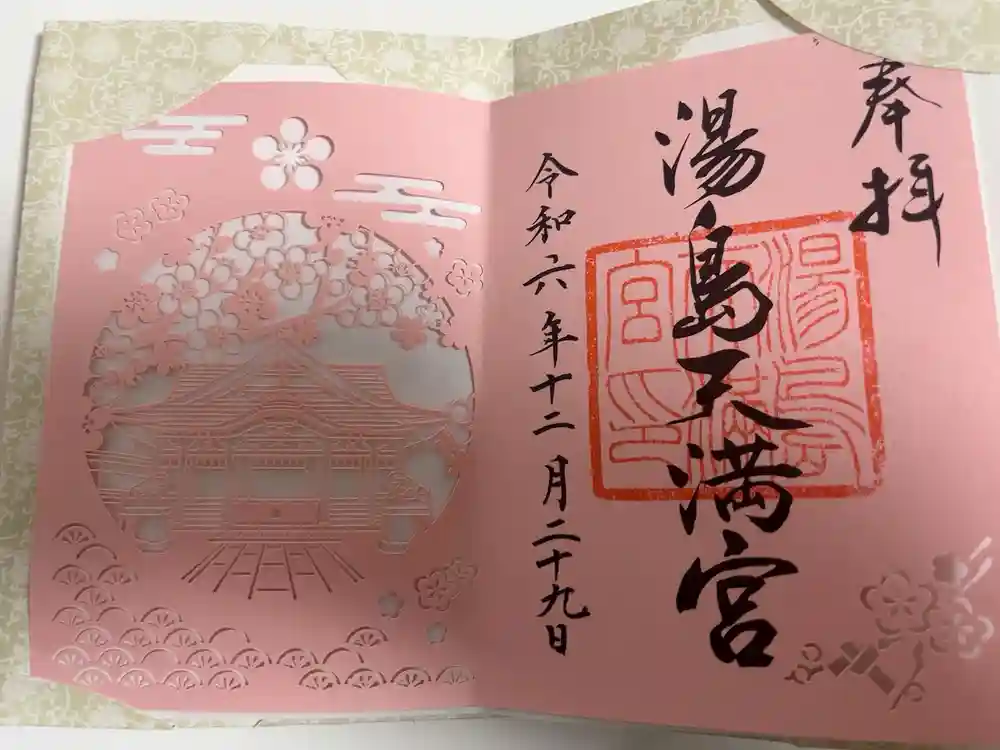 奉拝
湯島天満宮
湯島天満宮印
令和六年十二月二十九日